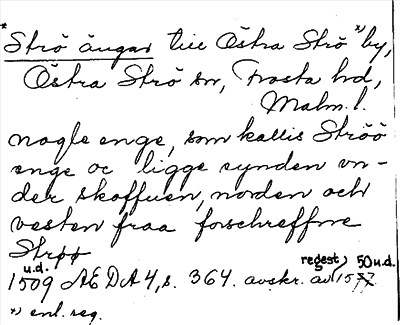 * Strö ängar till Östra Strö *) by,
Östra Strö sn, Frosta hd,
Malm. l.
nogle enge, som kallis Ströö
enge oc ligge synden vn-
der skoffuen, norden och
vesten fraa forschreffne
Strøø
u.d. regest) 50 u.d.
1509 ÆDA 4, s. 364. avskr. av 1577
*) enl. reg.